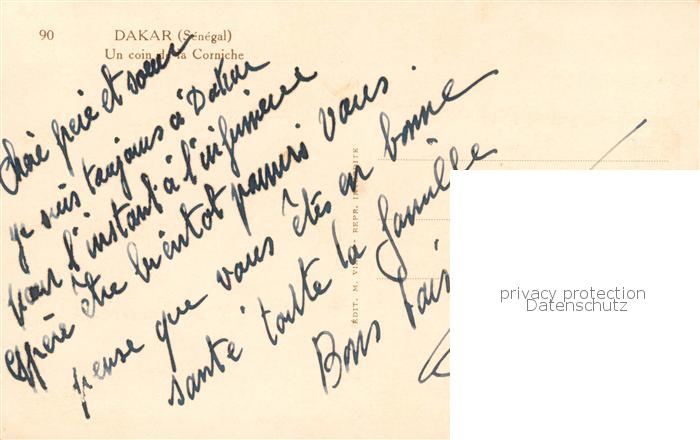 90
DAKAR (Sénégal)
Un coin de la Corniche
Chère frère et soeur
je suis toujours à Dakar
pour l'instant à l'infirmerie
espère être bientôt parmis vous.
pense que vous êtes en bonne
santé toute la famille
Bons
ÉDIT. M. REPR.
privacy protection
Datenschutz